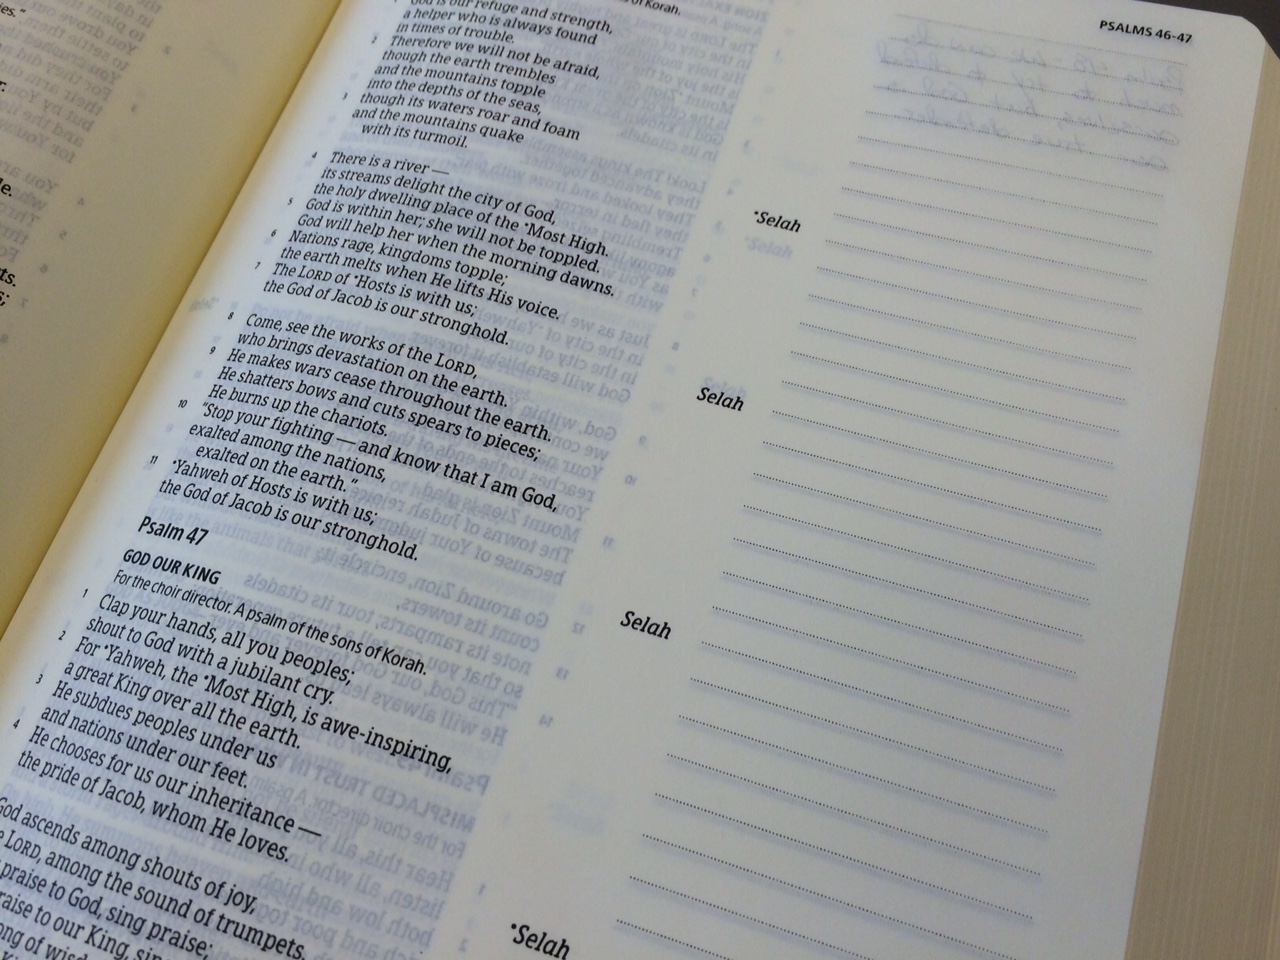 PSALMS 46-47
of Korah.
God is our refuge and strength,
a helper who is always found
in times of trouble.
2 Therefore we will not be afraid,
though the earth trembles
and the mountains topple
into the depths of the seas,
3 though its waters roar and foam
and the mountains quake
with its turmoil. *Selah
4 There is a river —
its streams delight the city of God,
the holy dwelling place of the *Most High.
5 God is within her; she will not be toppled.
God will help her when the morning dawns.
6 Nations rage, kingdoms topple;
the earth melts when He lifts His voice.
7 The LORD of *Hosts is with us;
the God of Jacob is our stronghold. Selah
8 Come, see the works of the LORD,
who brings devastation on the earth.
9 He makes wars cease throughout the earth.
He shatters bows and cuts spears to pieces;
He burns up the chariots.
10 “Stop your fighting — and know that I am God,
exalted among the nations,
exalted on the earth.”
11 *Yahweh of Hosts is with us;
the God of Jacob is our stronghold. Selah
Psalm 47
GOD OUR KING
For the choir director. A psalm of the sons of Korah.
1 Clap your hands, all you peoples;
shout to God with a jubilant cry.
2 For *Yahweh, the *Most High, is awe-inspiring,
a great King over all the earth.
3 He subdues peoples under us
and nations under our feet.
4 He chooses for us our inheritance —
the pride of Jacob, whom He loves. *Selah
God ascends among shouts of joy,
LORD, among the sound of trumpets.
praise to God, sing praise;
praise to our King, sing